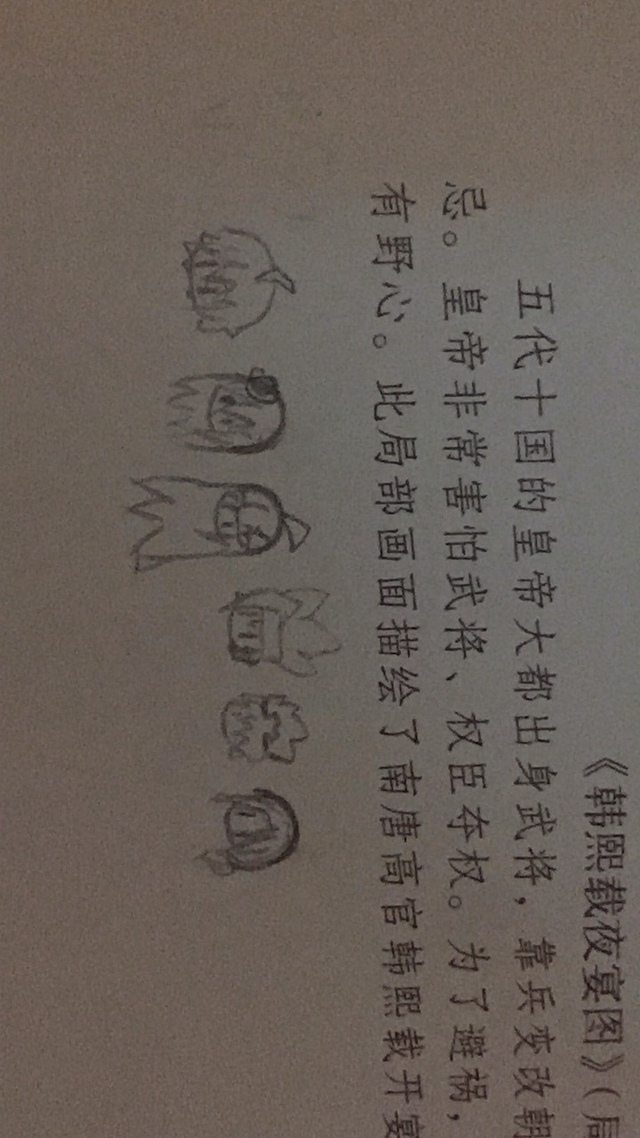 《韩熙载夜宴图》（局
五代十国的皇帝大都出身武将，靠兵变改朝
忌。皇帝非常害怕武将、权臣夺权。为了避祸，
有野心。此局部画面描绘了南唐高官韩熙载开宴